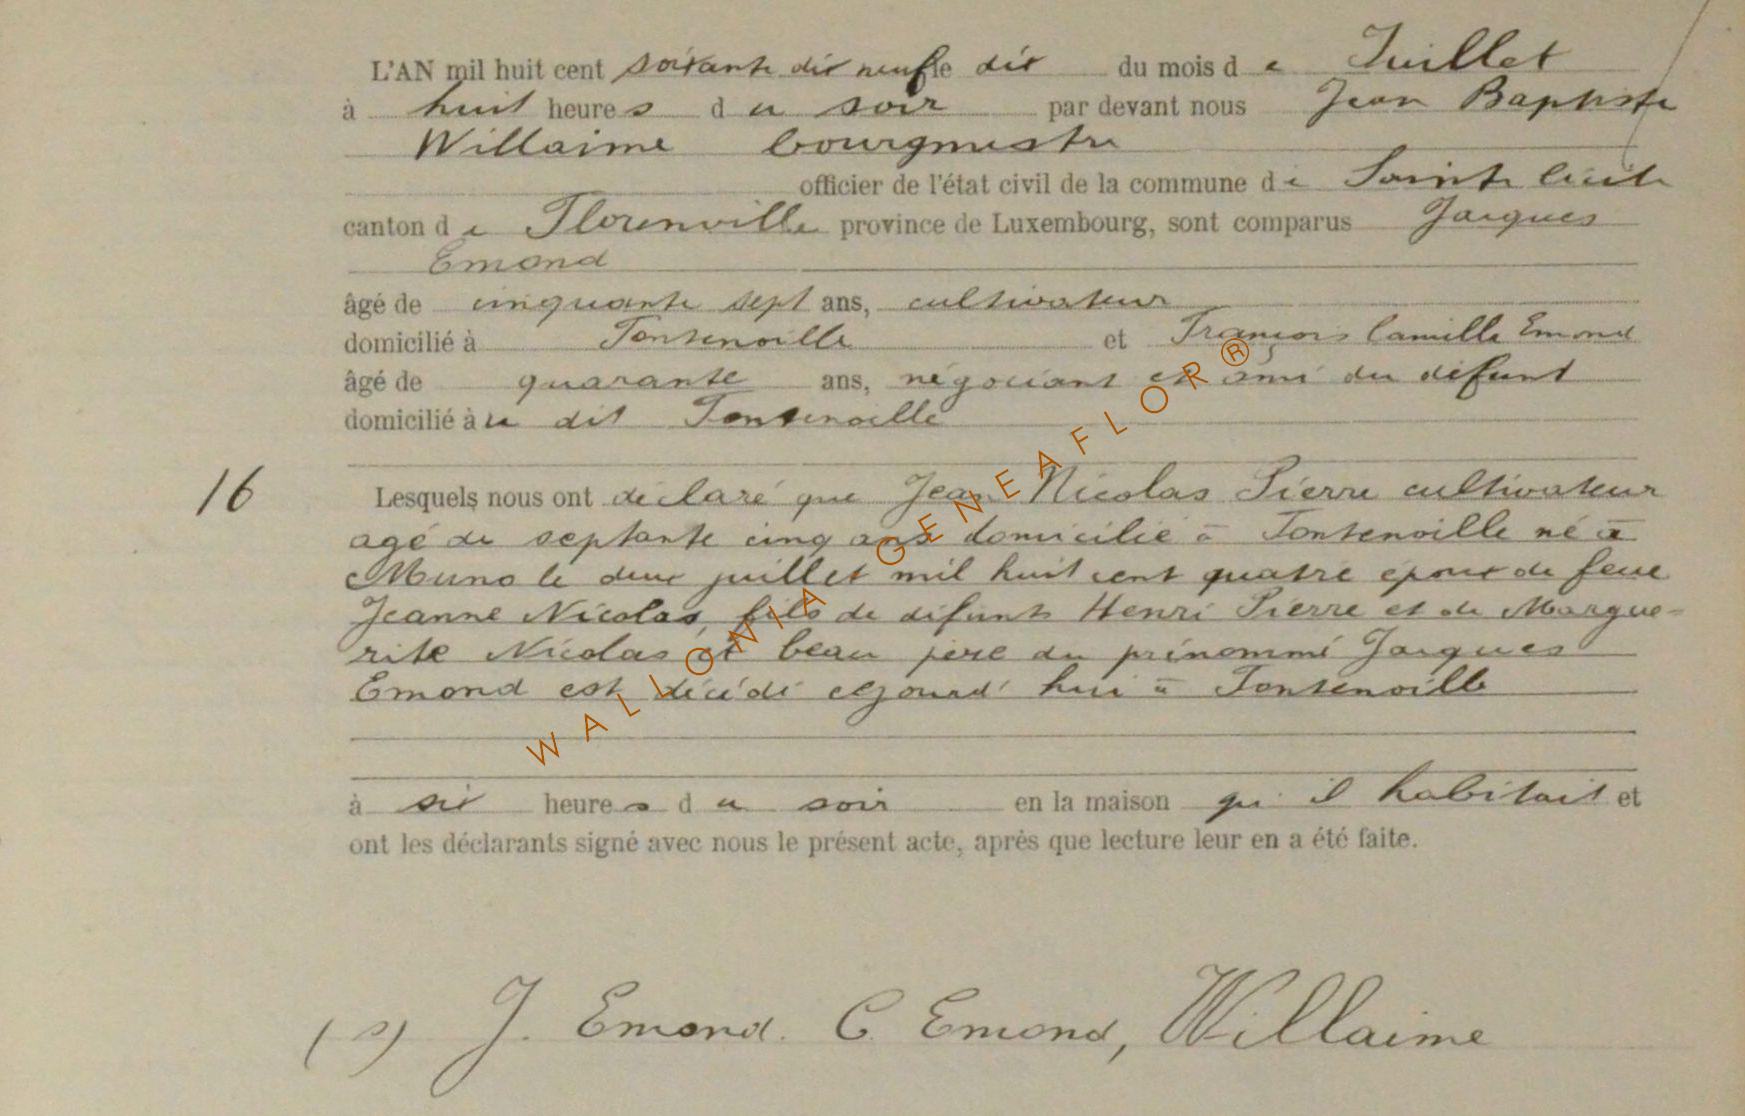 L'AN mil huit cent soixante dix neuf le dix du mois de Juillet
à huit heures du soir par devant nous Jean Baptiste
Willaime bourgmestre
officier de l'état civil de la commune de Sainte Cécile
canton de Florenville province de Luxembourg, sont comparus Jacques
Emond
âgé de cinquante sept ans, cultivateur
domicilié à Fontenoille et François Camille Emond
âgé de quarante ans, négociant et ami du défunt
domicilié àu dit Fontenoille
16
Lesquels nous ont déclaré que Jean Nicolas Pierre cultivateur
agé de septante cinq ans domicilié à Fontenoille né à
Muno le deux juillet mil huit cent quatre époux de feue
Jeanne Nicolas, fils de défunts Henri Pierre et de Margue-
rite Nicolas et beau père du prénommé Jacques
Emond est décédé cejourd'hui à Fontenoille
à six heures du soir en la maison qu'il habitait et
ont les déclarants signé avec nous le présent acte, après que lecture leur en a été faite.
(s) J. Emond. C. Emond, Willaime
WALLONIA GENEAFLOR®